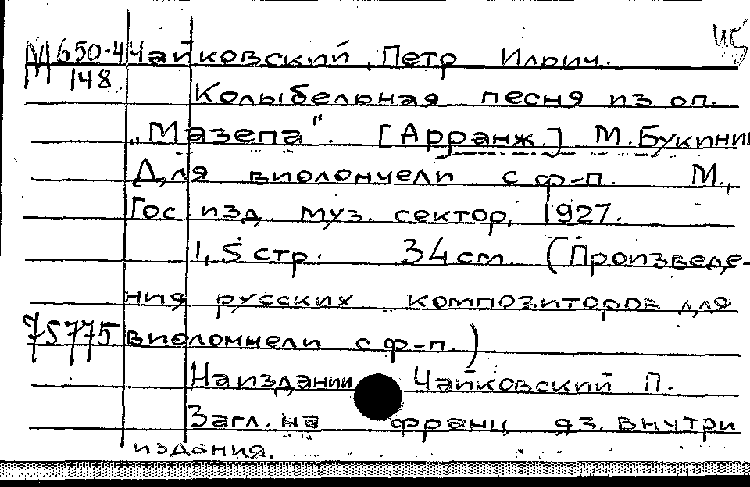 45
М 650-4 Чайковский, Петр Ильич.
148 Колыбельная песня из оп.
„Мазепа“. [Арранж.] М. Букиник
Для виолончели с ф-п. М.,
Гос изд муз. сектор, 1927.
1, 5 стр. 34 см (Произведе-
ния русских композиторов для
75775 виолончели с ф-п.)
На издании Чайковский П.
Загл. на франц яз. внутри
издания.